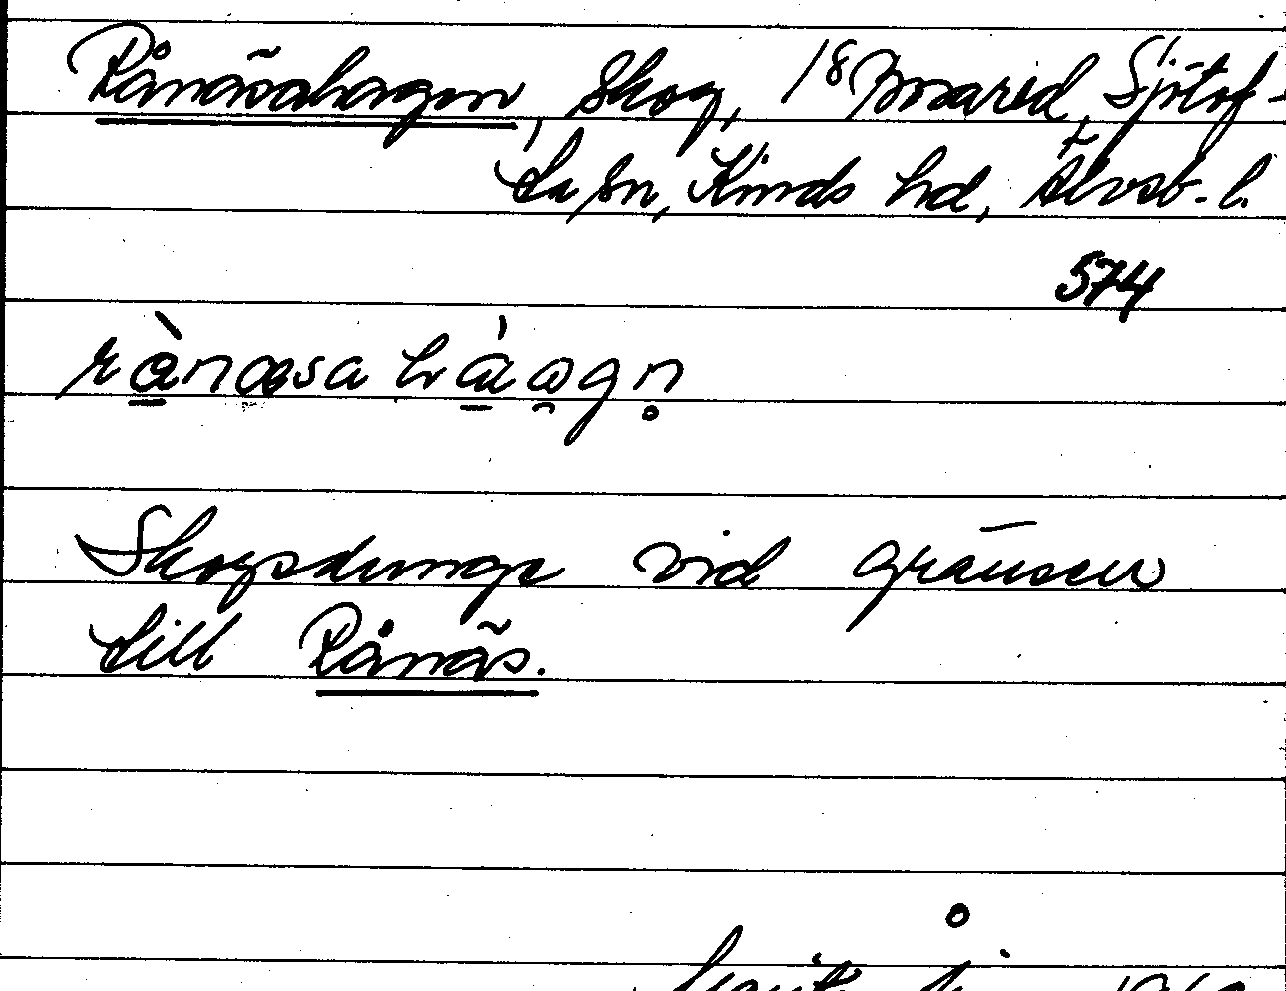 Rånäsahagen, Skog, 18 Bosared, Sjötof-
ta sn, Kinds hd, Älvsb. l.
574
rànæsa hàagn̥
Skogsdunge vid gränsen
till Rånäs.